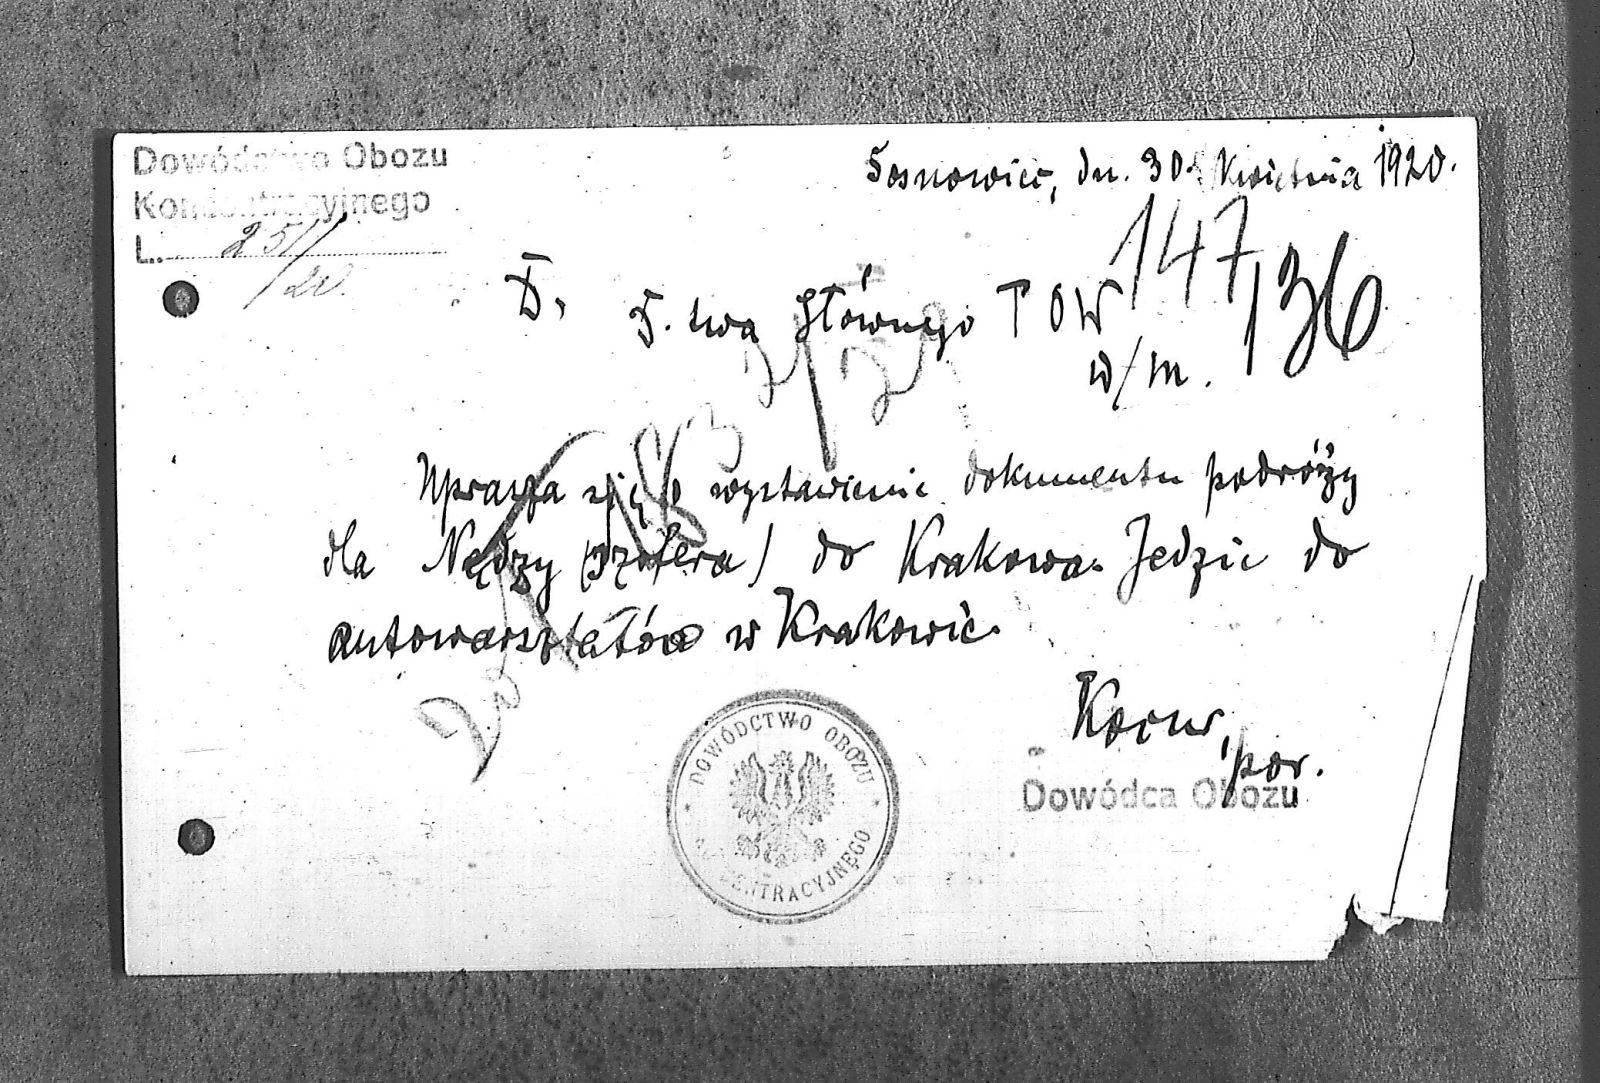 Dowództwo Obozu
Koncentracyjnego
L. 251/20.
Sosnowiec, dn. 30. Kwietnia 1920.
147/36
D. twa Głównego T O W
w/m.
Uprasza się o wystawienie dokumentu podróży
dla Nędzy (szofera) do Krakowa. Jedzie do
autowarsztatów w Krakowie.
por.
Dowódca Obozu
DOWÓDCTWO OBOZU
KONCENTRACYJNEGO